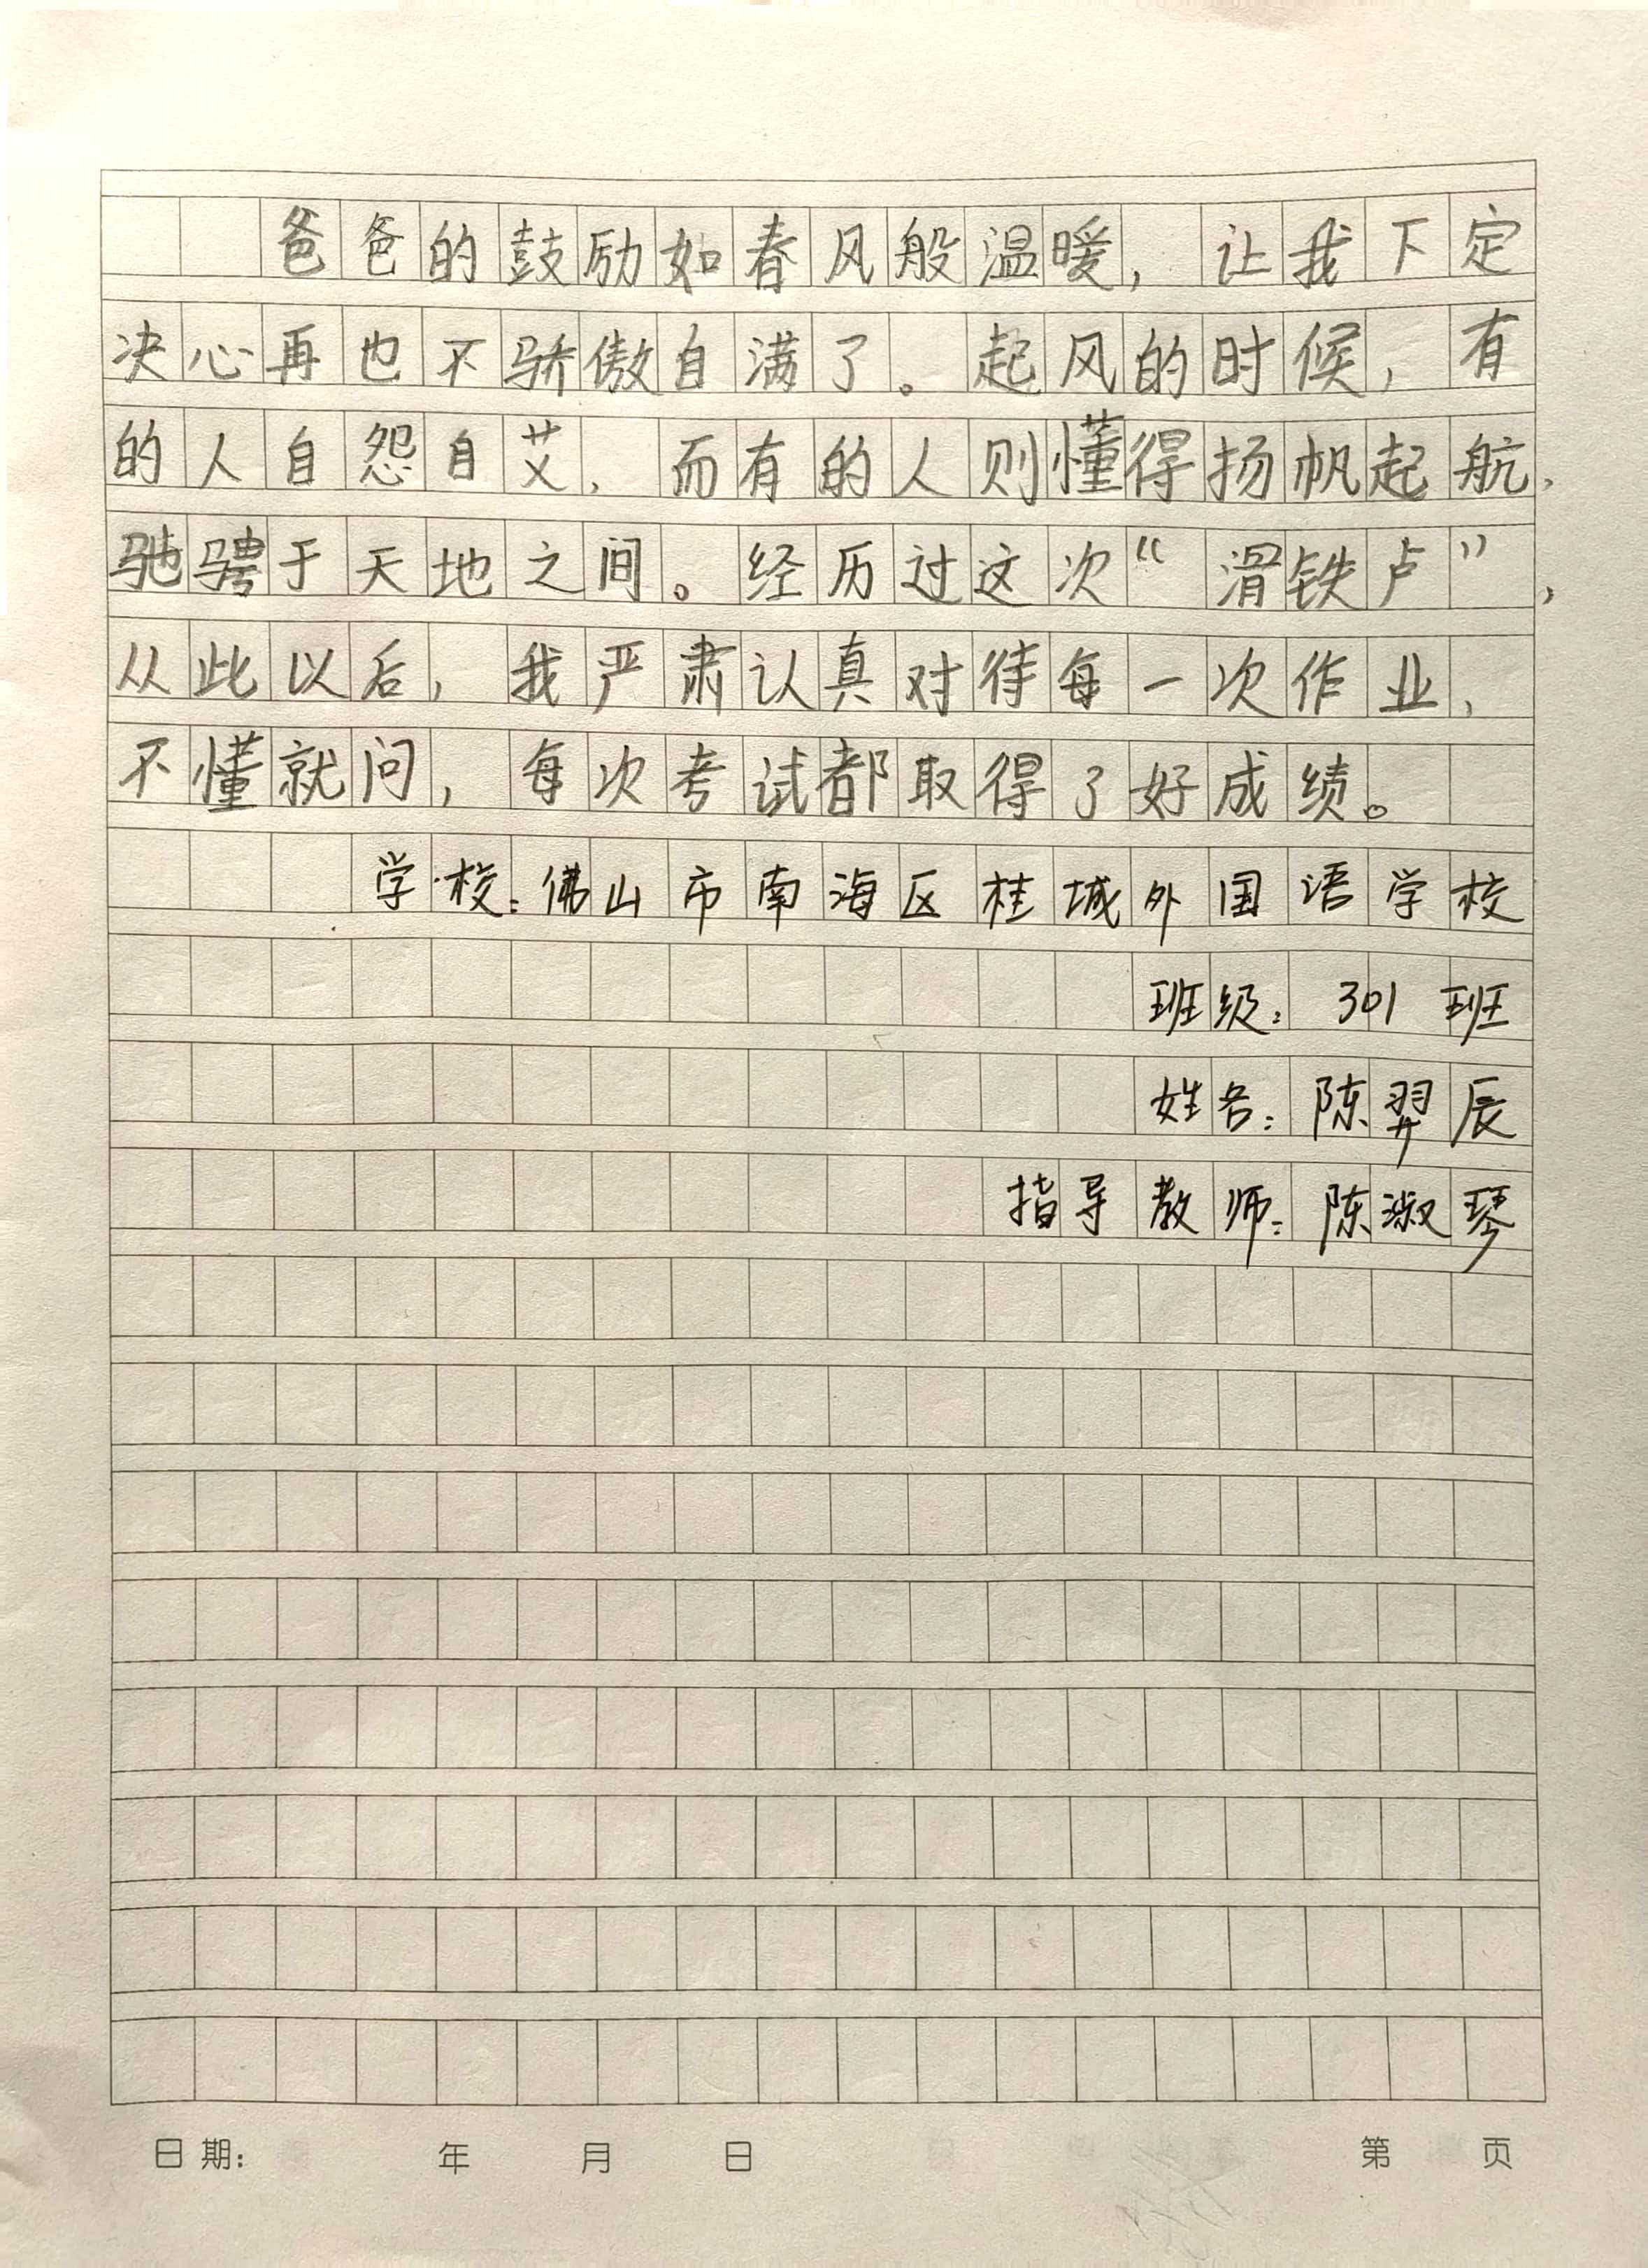 爸爸的鼓励如春风般温暖，让我下定
决心再也不骄傲自满了。起风的时候，有
的人自怨自艾，而有的人则懂得扬帆起航，
驰骋于天地之间。经历过这次“滑铁卢”，
从此以后，我严肃认真对待每一次作业，
不懂就问，每次考试都取得了好成绩。
学校：佛山市南海区桂城外国语学校
班级：301班
姓名：陈羿辰
指导教师：陈淑琴
日期： 年 月 日 第 页